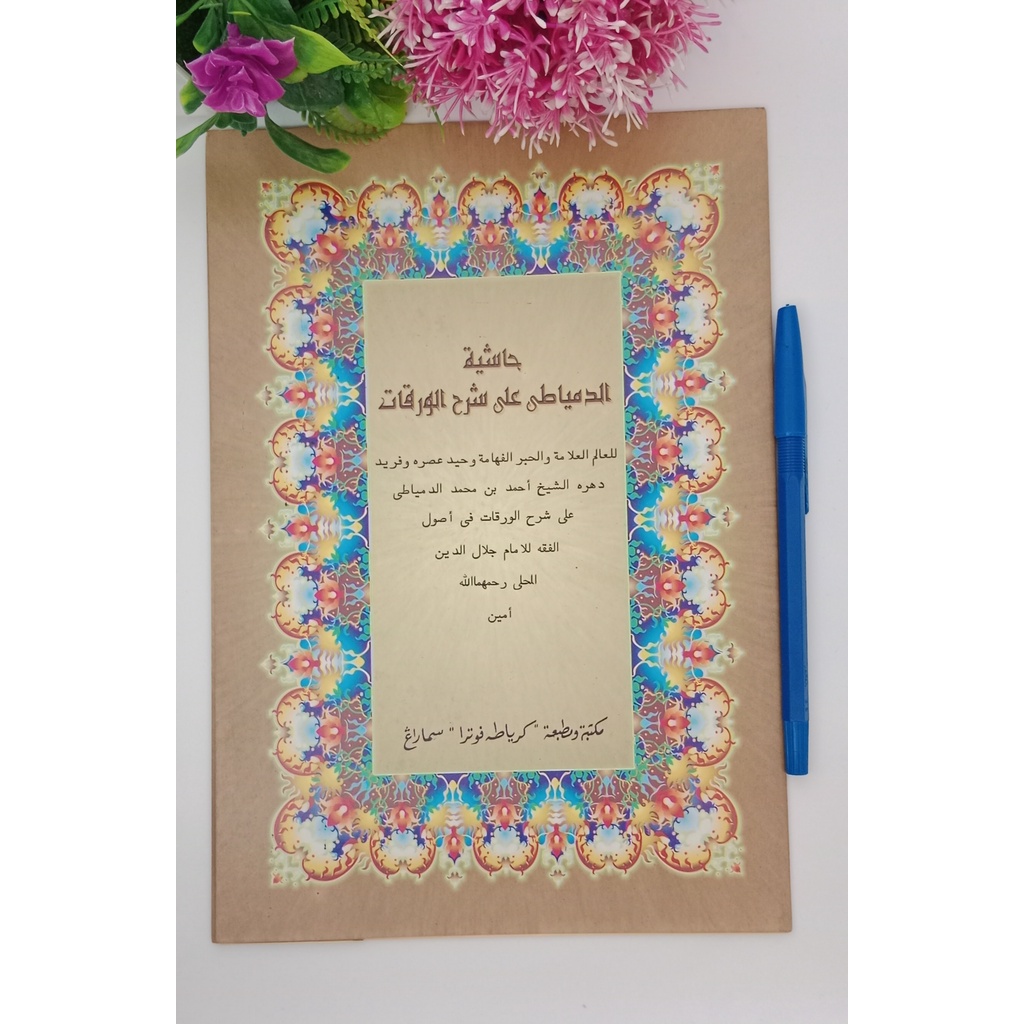 حاشية
الدمياطى على شرح الورقات
للعالم العلامة والحبر الفهامة وحيد عصره وفريد
دهره الشيخ أحمد بن محمد الدمياطى
على شرح الورقات فى أصول
الفقه للامام جلال الدين
المحلى رحمهماالله
أمين
مكتبة ومطبعة "كرياطه فوترا" سماراڠ